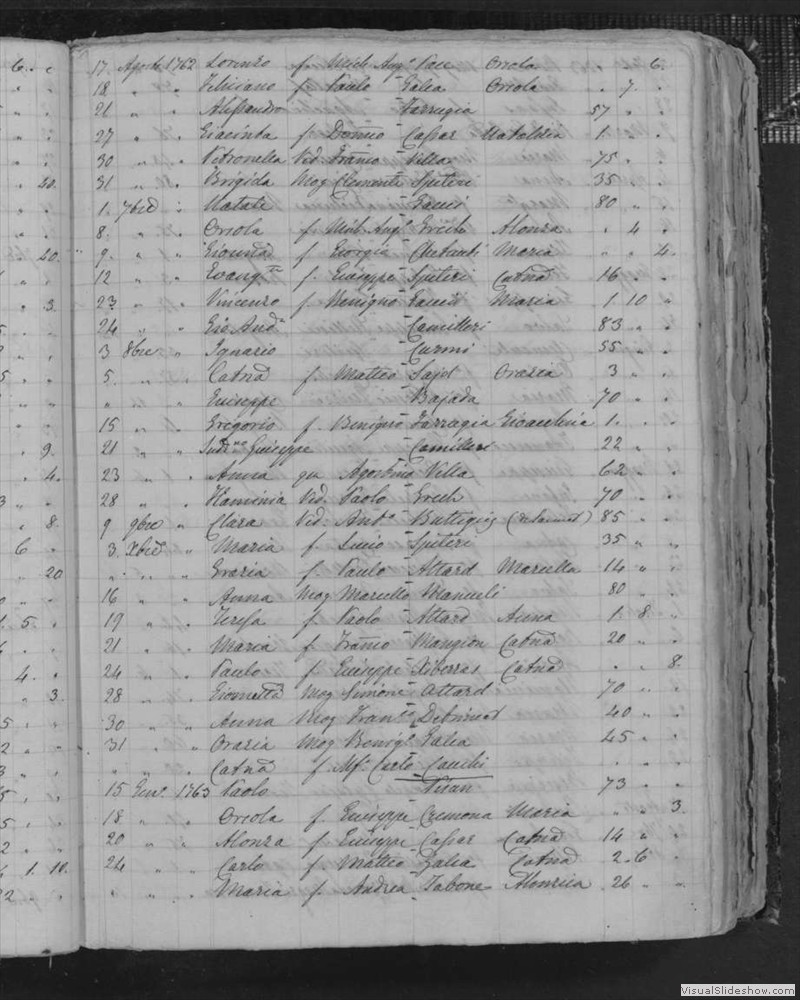 17. Agosto 1762 Lorenzo f. Mich. Ang.o Pace Orsola " 6. "
18 " " Feliciano f. Paulo Galea Orsola " 7. "
21 " " Alessandro Farrugia 57 " "
27 " " Giacinta f. Dom.co Cassar Matolda 1. " "
30 " " Petronella Vid. Fran.co Villa 75 " "
31 " " Brigida Mog Clemente Spiteri 35 " "
1. 7bre " Natale Gauci 80 " "
8. " " Orsola f. Mich. Ang.o Grech Alonza " 4 "
9. " " f. Giorgio Maria " " 4.
12 " " Evang.ta f. Giuseppe Spiteri Catna 16 " "
23 " " Vincenzo f. Benigno Gauci Maria 1. 10 "
24 " " Gio And.a Camilleri 83 " "
3 8bre " Ignazio Curmi 55 " "
5. " " Catna f. Matteo Sajd Grazia 3 " "
" " " Giuseppe Bajada 70 " "
15 " " Gregorio f. Benigno Farrugia Gioachina 1. " "
21 " " Giuseppe Camilleri 22 " "
23 " " Anna qu Agostino Villa 62 " "
28 " " Flaminia Vid. Paolo Grech 70 " "
9 9bre " Clara Vid. Ant.o Buttigieg 85 " "
3. Xbre " Maria f. Lucio Spiteri 35 " "
" " " Grazia f. Paulo Attard Marcella 14 " "
16 " " Anna Mog Marcello Manueli 80 " "
19 " " Teresa f. Paolo Attard Anna 1. 8 "
21 " " Maria f. Fran.co Mangion Catna 20 " "
24 " " Paulo f. Giuseppe Xiberras Catna " " 8.
28 " " Giomatta Mog Simone Attard 70 " "
30 " " Anna Mog Fran.co Debrincat 40 " "
31 " " Grazia Mog Benig.o Galea 45 " "
" " " Catna f. M.o Carlo Cauchi " " "
15 Gen.o 1763 Paolo Pisan 73 " "
18 " " Orsola f. Giuseppe Cremona Maria " " 3.
20 " " Alonza f. Giuseppe Cassar Catna 14 " "
24 " " Carlo f. Matteo Galea Catna 2. 6 "
" " " Maria f. Andrea Tabone 26 " "
VisualSlideshow.com